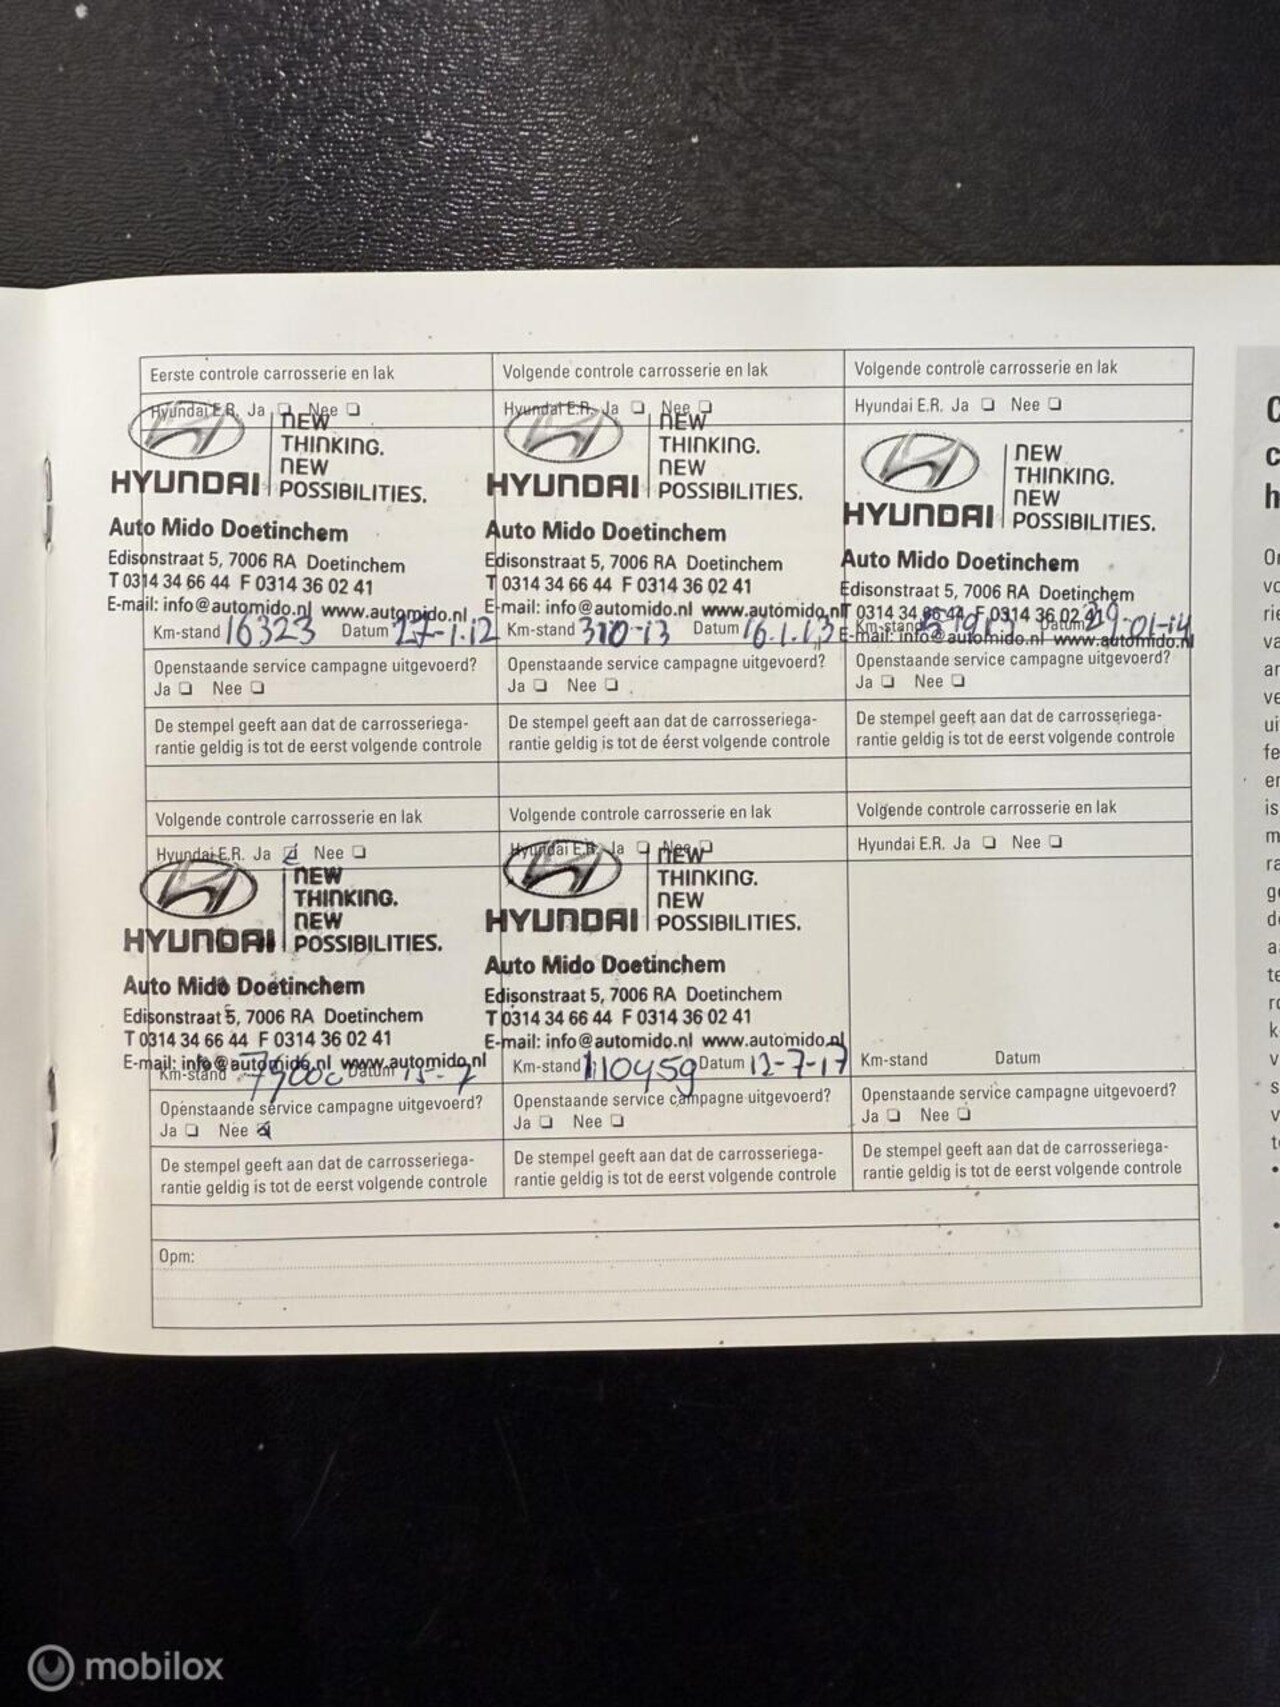 Eerste controle carrosserie en lak
Hyundai E.R. Ja Nee
HYUNDAI
NEW
THINKING.
NEW
POSSIBILITIES.
Auto Mido Doetinchem
Edisonstraat 5, 7006 RA Doetinchem
T 0314 34 66 44 F 0314 36 02 41
E-mail: info@automido.nl www.automido.nl
Km-stand 16323 Datum 27-1.12
Openstaande service campagne uitgevoerd?
Ja Nee
De stempel geeft aan dat de carrosseriega-
rantie geldig is tot de eerst volgende controle
Volgende controle carrosserie en lak
Hyundai E.R. Ja Nee
HYUNDAI
NEW
THINKING.
NEW
POSSIBILITIES.
Auto Mido Doetinchem
Edisonstraat 5, 7006 RA Doetinchem
T 0314 34 66 44 F 0314 36 02 41
E-mail: info@automido.nl www.automido.nl
Km-stand Datum 16.1.13
Openstaande service campagne uitgevoerd?
Ja Nee
De stempel geeft aan dat de carrosseriega-
rantie geldig is tot de eerst volgende controle
Volgende controle carrosserie en lak
Hyundai E.R. Ja Nee
HYUNDAI
NEW
THINKING.
NEW
POSSIBILITIES.
Auto Mido Doetinchem
Edisonstraat 5, 7006 RA Doetinchem
T 0314 34 66 44 F 0314 36 02 41
Km-stand Datum 29-01-14
E-mail: info@automido.nl www.automido.nl
Openstaande service campagne uitgevoerd?
Ja Nee
De stempel geeft aan dat de carrosseriega-
rantie geldig is tot de eerst volgende controle
Volgende controle carrosserie en lak
Hyundai E.R. Ja Nee
HYUNDAI
NEW
THINKING.
NEW
POSSIBILITIES.
Auto Mido Doetinchem
Edisonstraat 5, 7006 RA Doetinchem
T 0314 34 66 44 F 0314 36 02 41
E-mail: info@automido.nl www.automido.nl
Km-stand Datum
Openstaande service campagne uitgevoerd?
Ja Nee
De stempel geeft aan dat de carrosseriega-
rantie geldig is tot de eerst volgende controle
Hyundai E.R. Ja Nee
HYUNDAI
NEW
THINKING.
NEW
POSSIBILITIES.
Auto Mido Doetinchem
Edisonstraat 5, 7006 RA Doetinchem
T 0314 34 66 44 F 0314 36 02 41
E-mail: info@automido.nl www.automido.nl
Km-stand 110459 Datum 12-7-17
Openstaande service campagne uitgevoerd?
Ja Nee
De stempel geeft aan dat de carrosseriega-
rantie geldig is tot de eerst volgende controle
Volgende controle carrosserie en lak
Hyundai E.R. Ja Nee
Km-stand Datum
Openstaande service campagne uitgevoerd?
Ja Nee
De stempel geeft aan dat de carrosseriega-
rantie geldig is tot de eerst volgende controle
Opm:
mobilox